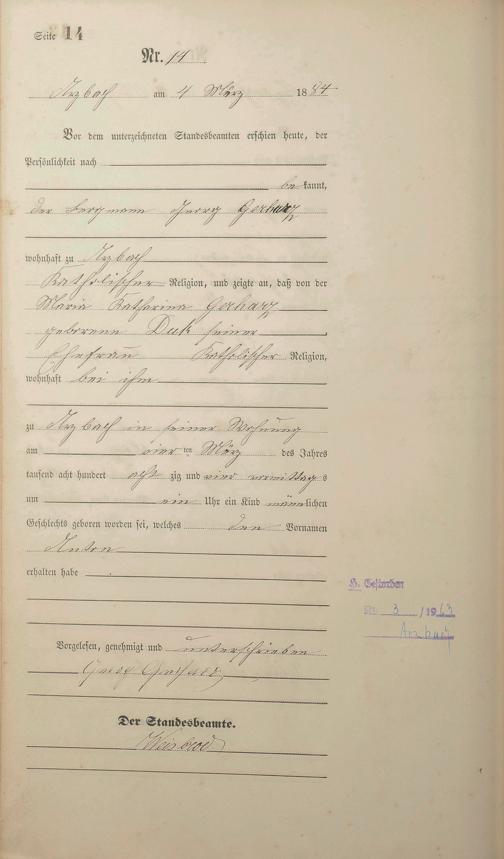 Seite 14
Nr. 14
Arzbach am 4 März 1884
Vor dem unterzeichneten Standesbeamten erschien heute, der
Persönlichkeit nach
bekannt,
der Bergmann Georg Gerharz
wohnhaft zu Arzbach
Katholischer Religion, und zeigte an, daß von der
Maria Katharina Gerharz
geborene Duk seiner
Ehefrau Katholischer Religion,
wohnhaft bei ihm
zu Arzbach in seiner Wohnung
am vier ten März des Jahres
tausend acht hundert acht zig und vier vormittags
um ein Uhr ein Kind männlichen
Geschlechts geboren worden sei, welches den Vornamen
Anton
erhalten habe
H. Gestorben
Nr. 3 /1963
Arzbach
Vorgelesen, genehmigt und unterschrieben
Georg Gerharz
Der Standesbeamte.
Weisbrod